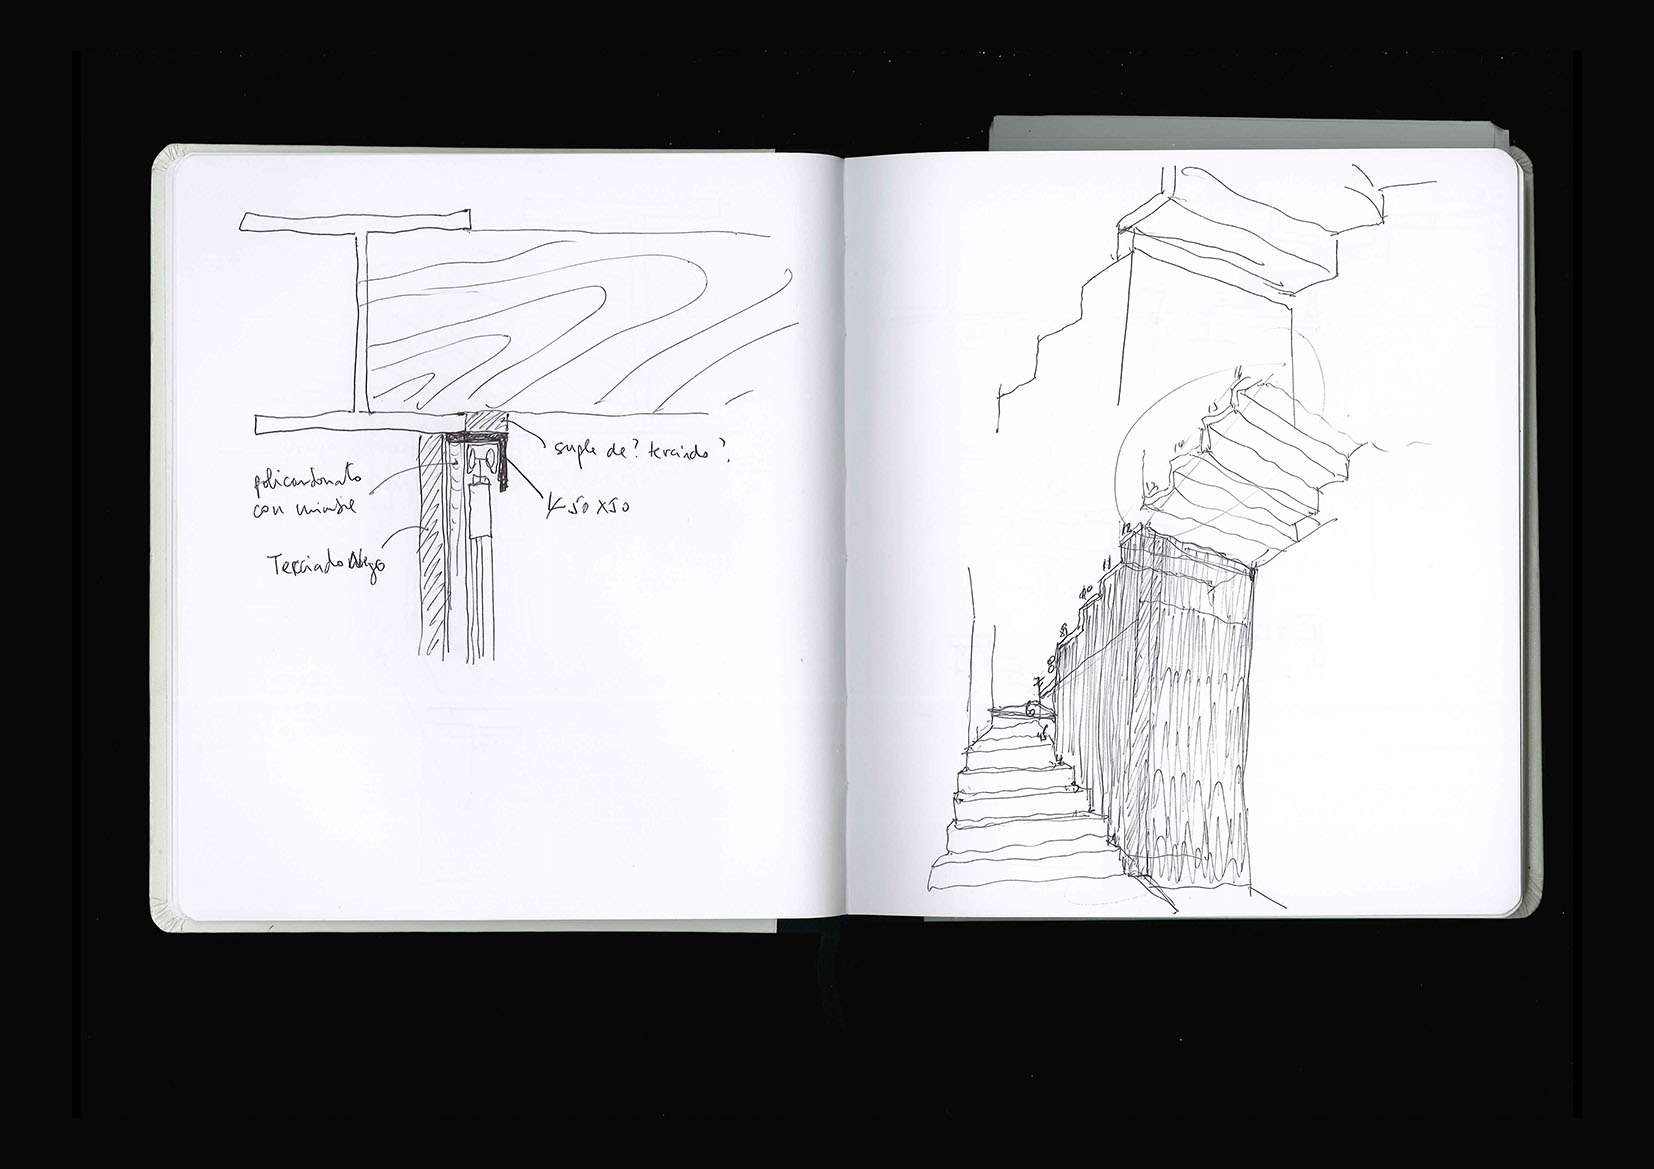 suple de? terciado?
policarbonato
con mimbre
50 x 50
Terciado
16
15
14
13
12
11
10
9
8
7
6
5
4